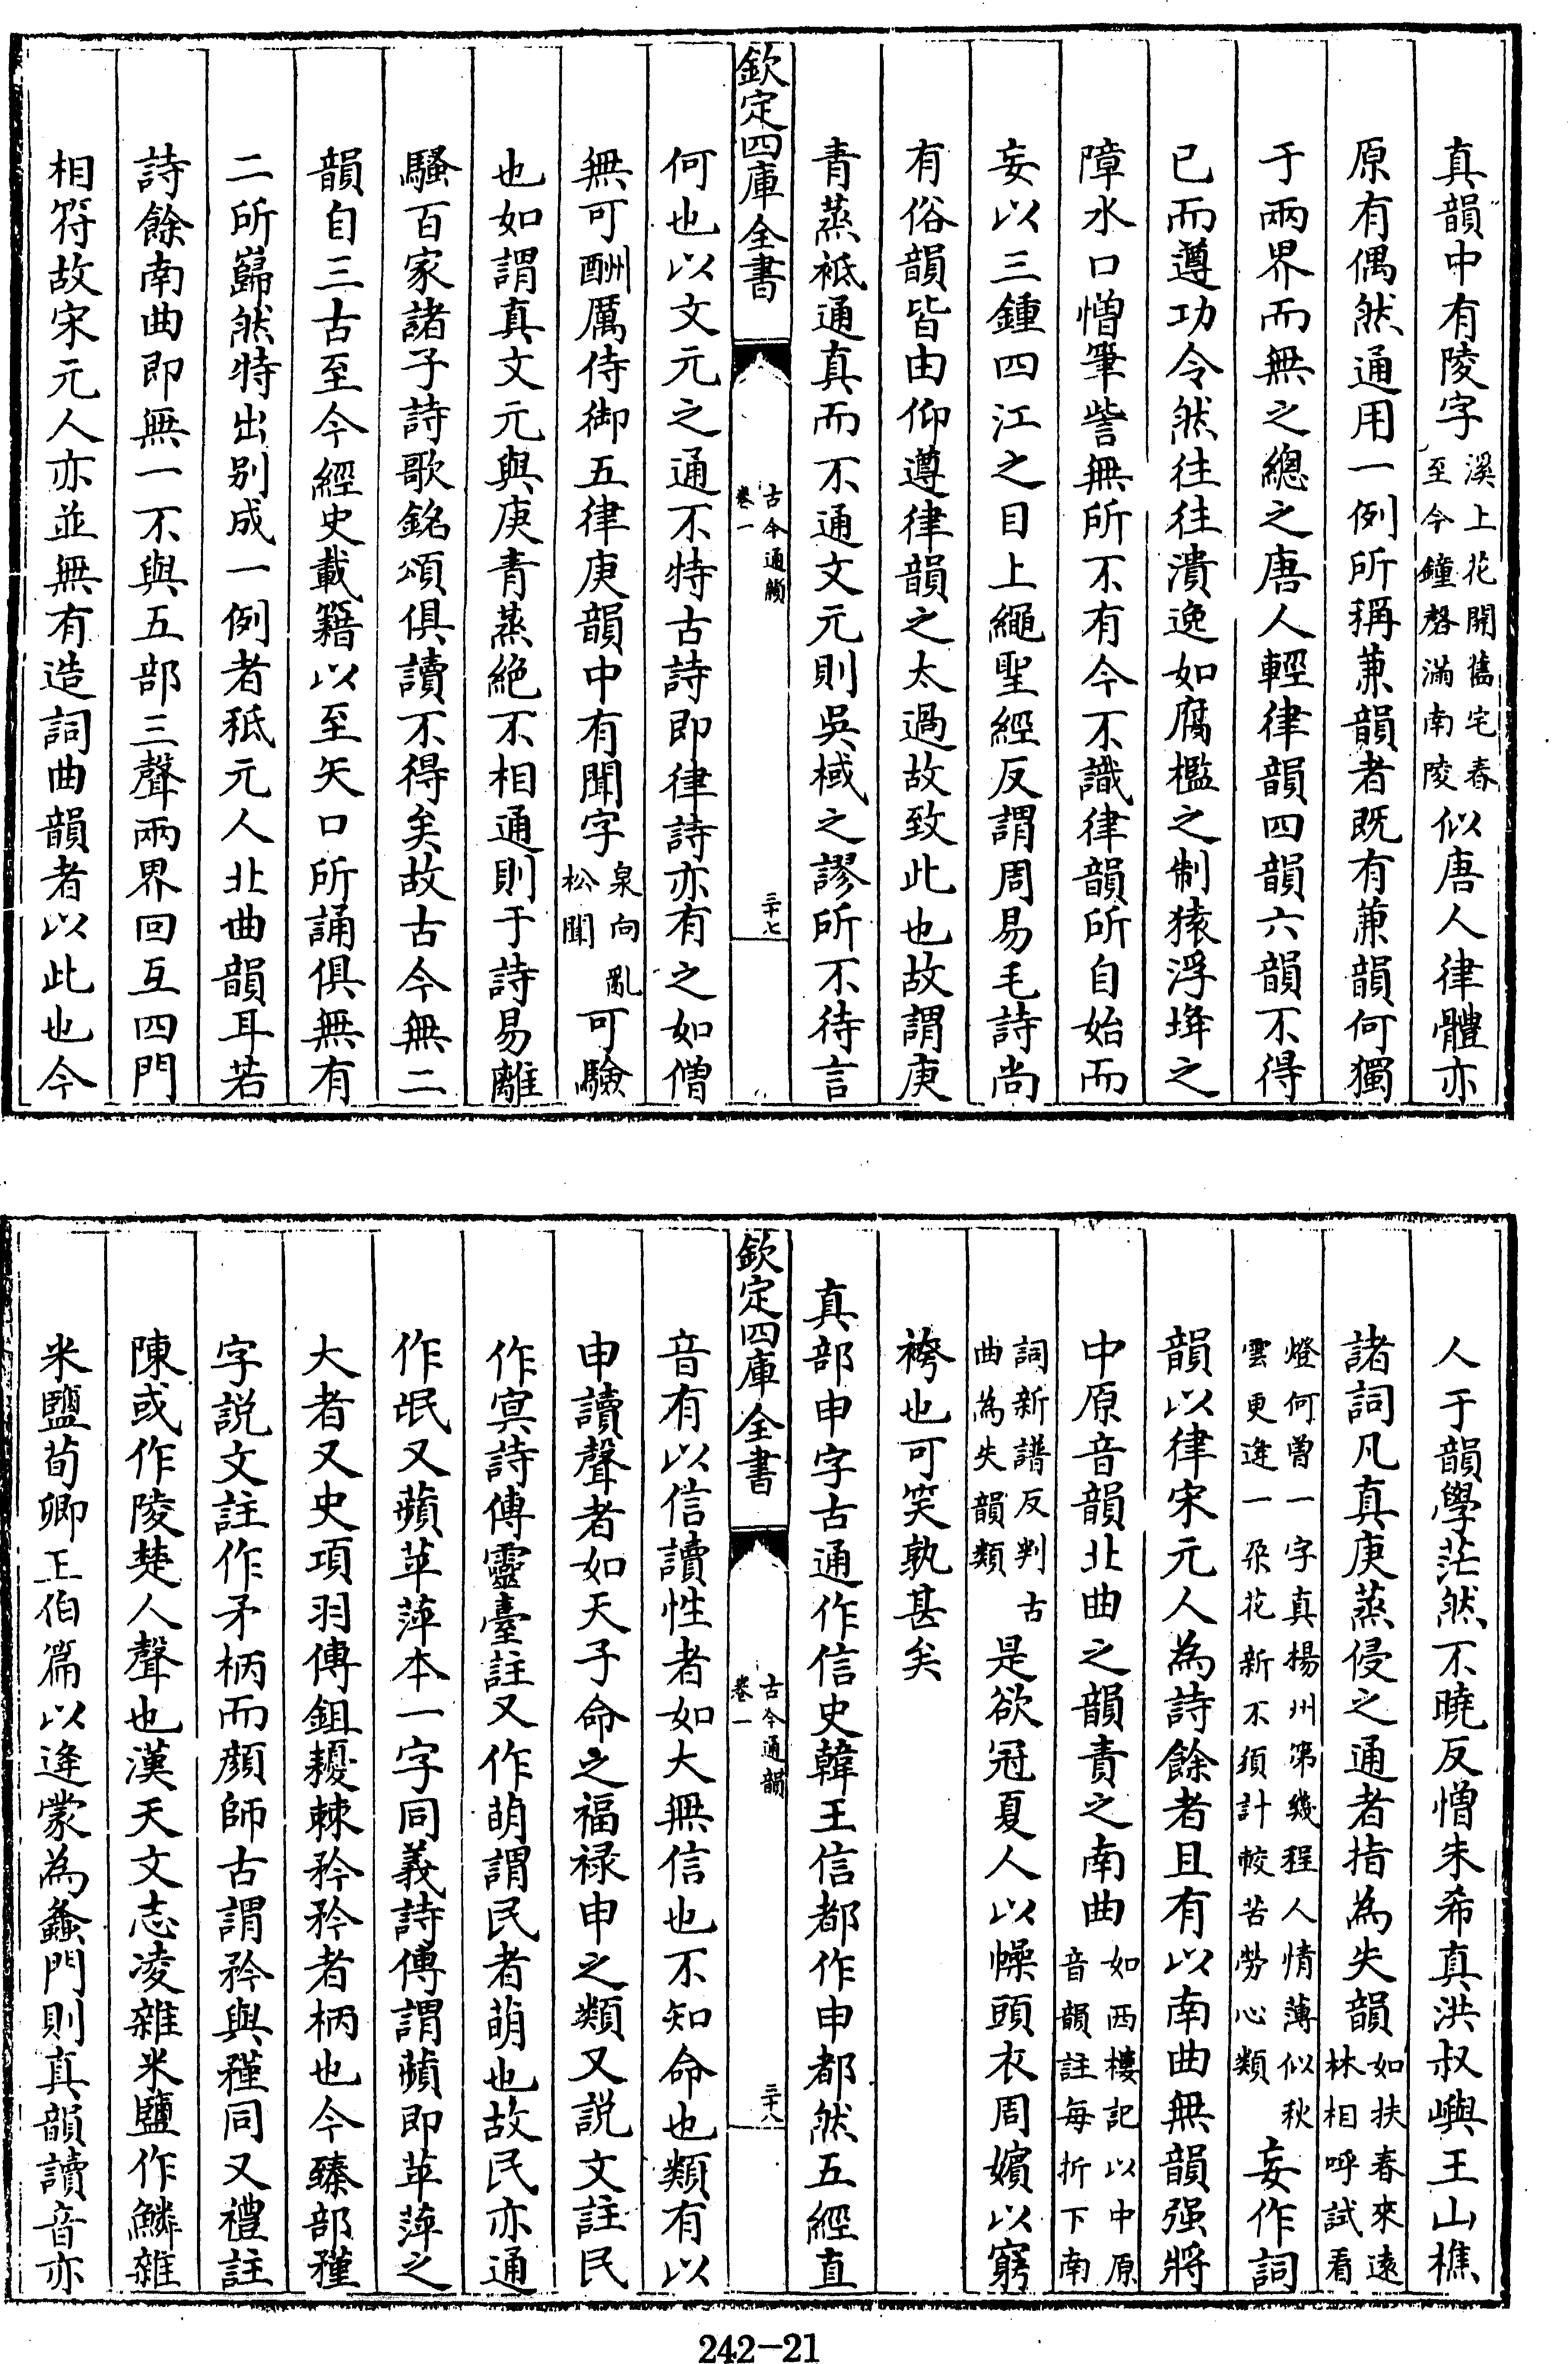 真韻中有陵字溪上花開舊宅春至今鐘磬滿南陵似唐人律體亦
原有偶然通用一例所稱兼韻者既有兼韻何獨
于兩界而無之總之唐人輕律韻四韻六韻不得
已而遵功令然往往潰逸如腐檻之制猿浮埄之
障水口憎筆訾無所不有今不識律韻所自始而
妄以三鍾四江之目上繩聖經反謂周易毛詩尚
有俗韻皆由仰遵律韻之太過故致此也故謂庚
青蒸祇通真而不通文元則吳棫之謬所不待言
欽定四庫全書
古今通韻
卷一
三十七
何也以文元之通不特古詩即律詩亦有之如僧
無可酬厲侍御五律庚韻中有聞字泉向亂松聞可驗
也如謂真文元與庚青蒸絶不相通則于詩易離
騷百家諸子詩歌銘頌俱讀不得矣故古今無二
韻自三古至今經史載籍以至矢口所誦俱無有
二所巋然特出别成一例者秪元人北曲韻耳若
詩餘南曲即無一不與五部三聲兩界回互四門
相符故宋元人亦並無有造詞曲韻者以此也今
人于韻學茫然不曉反憎朱希真洪叔嶼王山樵
諸詞凡真庚蒸侵之通者指為失韻如扶春來遠林相呼試看
燈何曽一字真楊州第幾程人情薄似秋雲更逢一朶花新不須計較苦勞心類妄作詞
韻以律宋元人為詩餘者且有以南曲無韻强將
中原音韻北曲之韻責之南曲如西樓記以中原音韻註每折下南
詞新譜反判古曲為失韻類是欲冠夏人以幧頭衣周嬪以窮
袴也可笑孰甚矣
真部申字古通作信史韓王信都作申都然五經直
欽定四庫全書
古今通韻
卷一
三十八
音有以信讀性者如大無信也不知命也類有以
申讀聲者如天子命之福禄申之類又説文註民
作㝠詩傳靈臺註又作萌謂民者萌也故民亦通
作氓又蘋苹萍本一字同義詩傳謂蘋即苹萍之
大者又史項羽傳鉏耰棘矜矜者柄也今臻部矝
字説文註作矛柄而顔師古謂矜與矝同又禮註
陳或作陵楚人聲也漢天文志凌雜米鹽作鱗雜
米鹽荀卿正伯篇以逄蒙為蠭門則真韻讀音亦
242-21